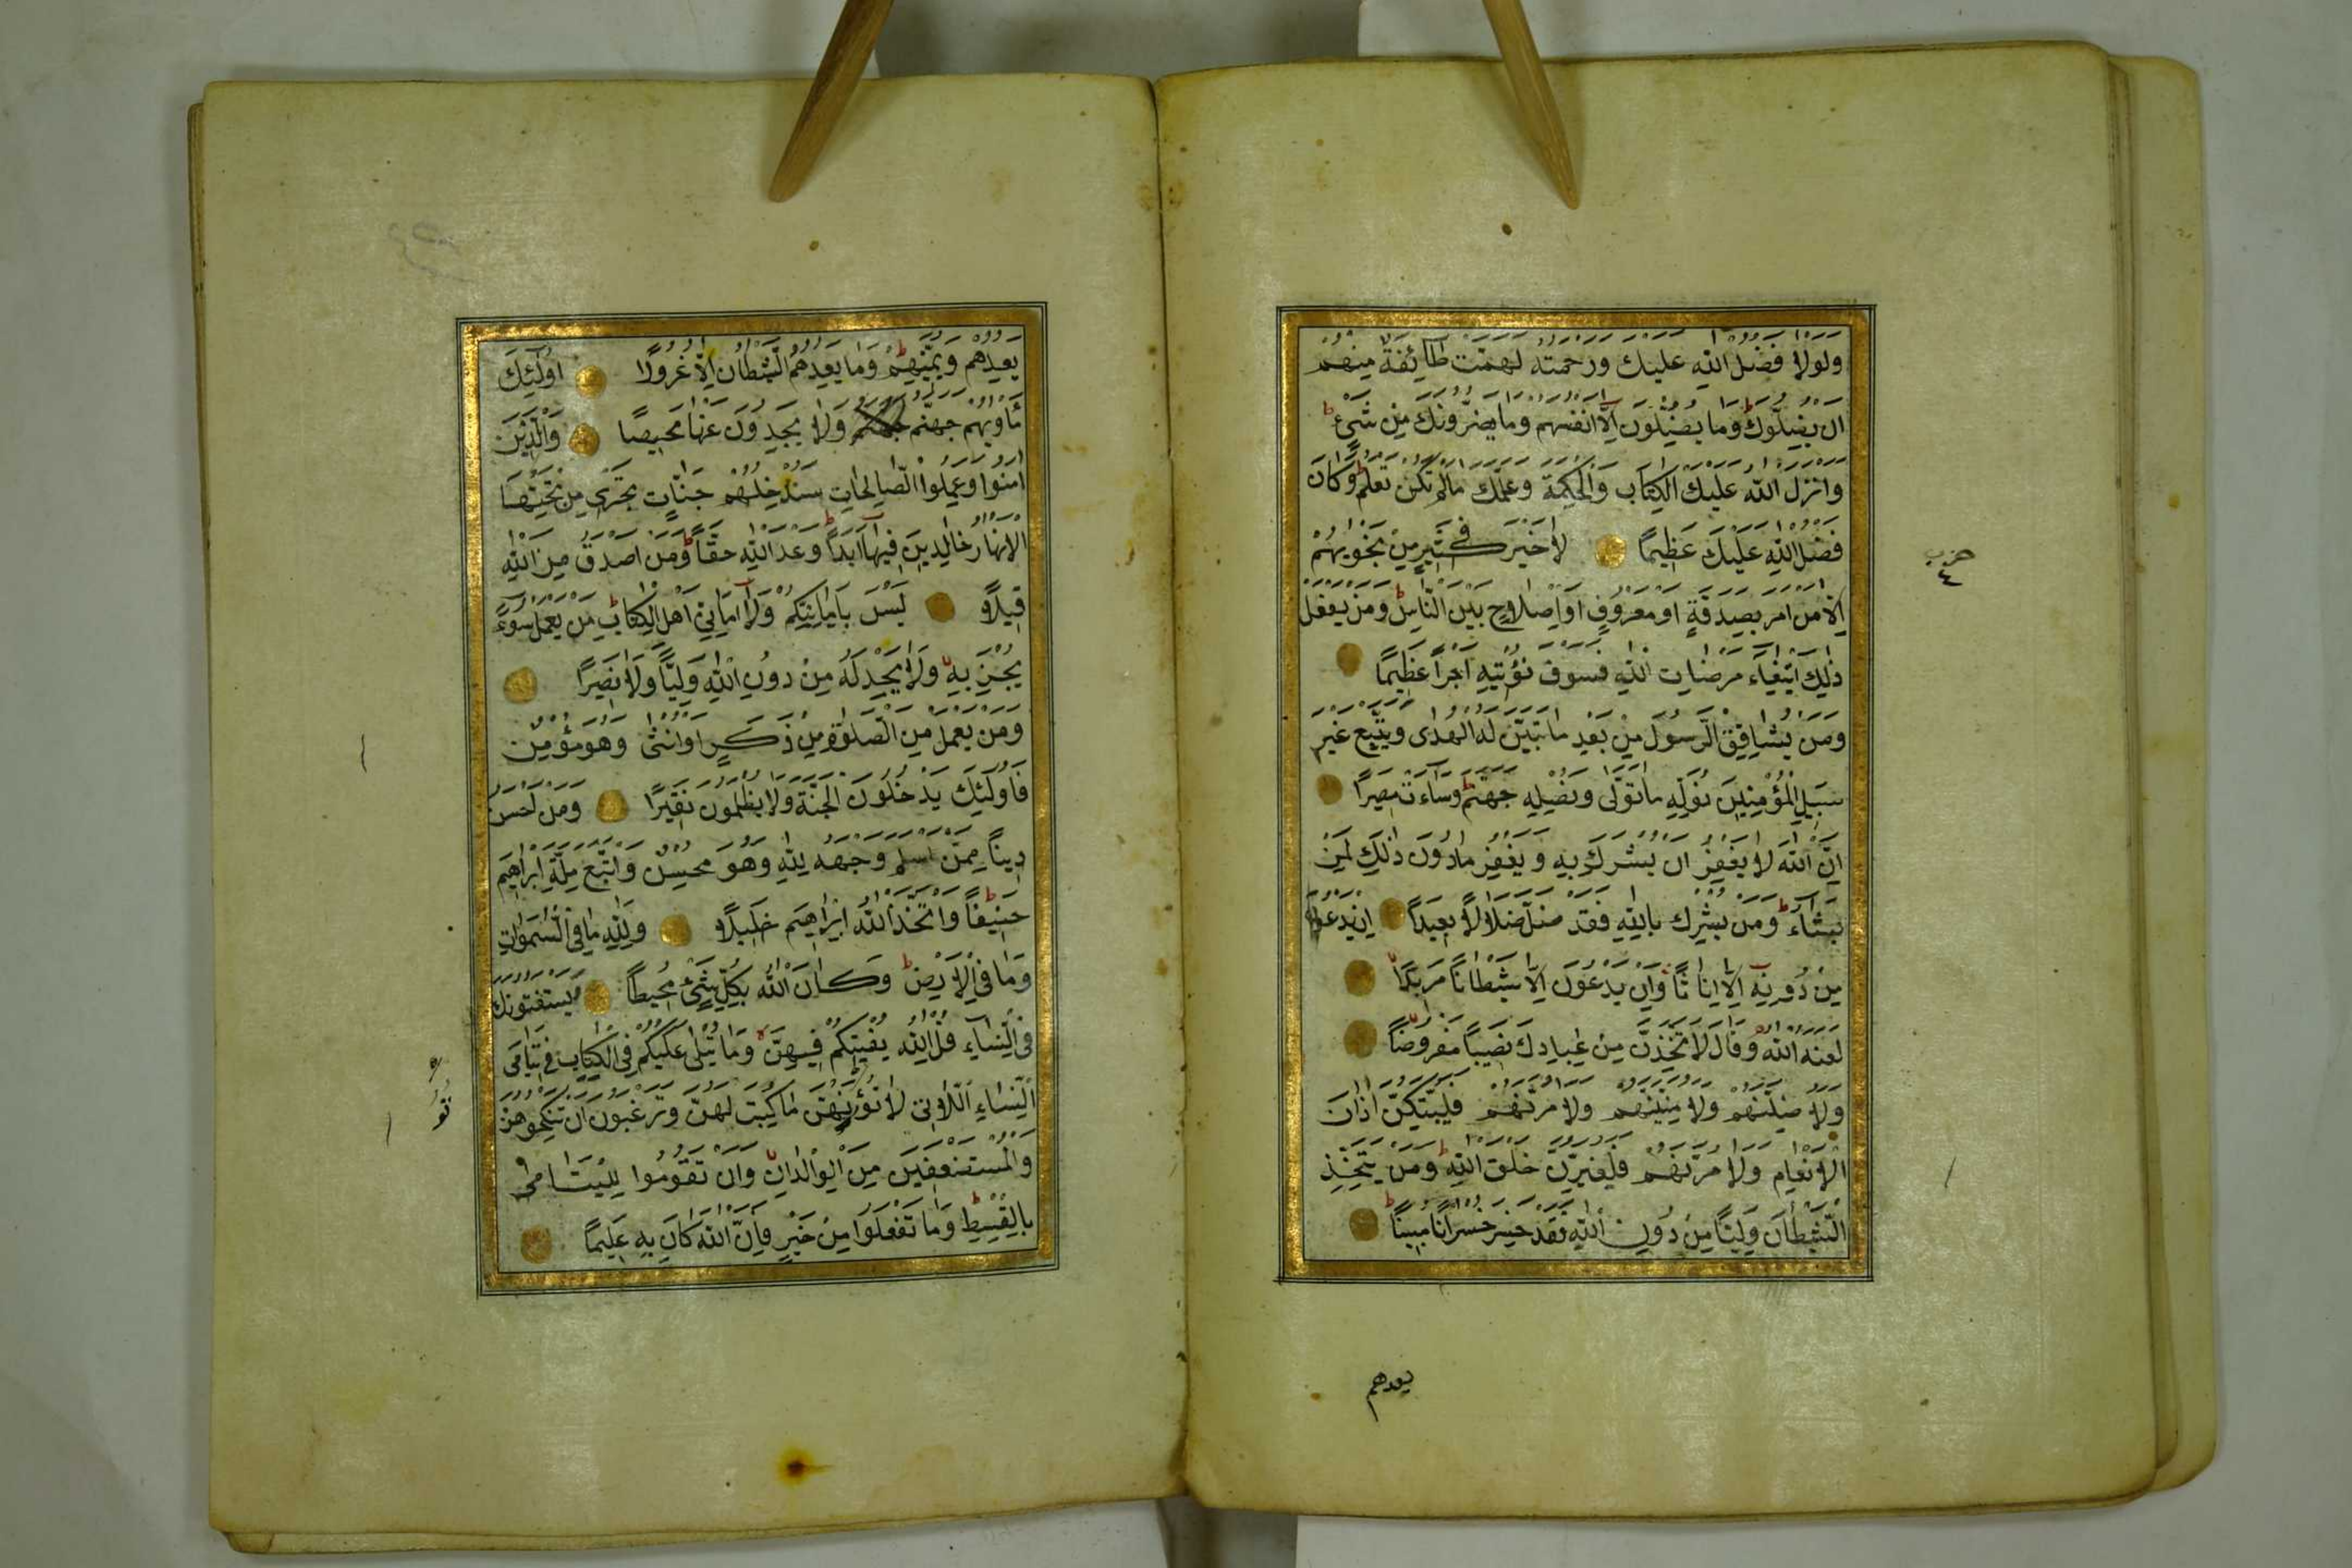 ولولا فضل الله عليك ورحمته لهمت طائفة منهم
ان يضلوك وما يضلون الا انفسهم وما يضرونك من شئ
وانزل الله عليك الكتاب والحكمة وعلمك مالم تكن تعلم وكان
فضل الله عليك عظيما لا خير في كثير من نجويهم
الا من امر بصدقة او معروف او اصلاح بين الناس ومن يفعل
ذلك ابتغاء مرضات الله فسوف نؤتيه اجرا عظيما
ومن يشاقق الرسول من بعد ما تبين له الهدى ويتبع غير
سبيل المؤمنين نوله ما تولى ونصله جهنم وساءت مصيرا
ان الله لا يغفر ان يشرك به ويغفر مادون ذلك لمن
يشاء ومن يشرك بالله فقد ضل ضلالا بعيدا ان يدعون
من دونه الا اناثا وان يدعون الا شيطانا مريدا
لعنه الله وقال لاتخذن من عبادك نصيبا مفروضا
ولا ضلنهم ولا منينهم ولا مرنهم فليبتكن اذان
الانعام ولا مرنهم فليغيرن خلق الله ومن يتخذ
الشيطان وليا من دون الله فقد خسر خسرانا مبينا
حزب
٤
يعدهم
يعدهم ويمنيهم وما يعدهم الشيطان الا غرورا اولئك
مأويهم جهنم ولا يجدون عنها محيصا والذين
امنوا وعملوا الصالحات سندخلهم جنات تجرى من تحتها
الانهار خالدين فيها ابدا وعد الله حقا ومن اصدق من الله
قيلا ليس بامانيكم ولا امانى اهل الكتاب من يعمل سوء
يجز به ولا يجد له من دون الله وليا ولا نصيرا
ومن يعمل من الصلوة من ذكر او انثى وهو مؤمن
فاولئك يدخلون الجنة ولا يظلمون نقيرا ومن احسن
دينا ممن اسلم وجهه لله وهو محسن واتبع ملة ابراهيم
حنيفا واتخذ الله ابراهيم خليلا ولله ما فى السموات
وما فى الارض وكان الله بكل شئ محيطا ويستفتونك
فى النساء قل الله يفتيكم فيهن وما يتلى عليكم فى الكتاب فى يتامى
النساء اللاتى لا تؤتونهن ما كتب لهن وترغبون ان تنكحوهن
والمستضعفين من الولدان وان تقوموا لليتامى
بالقسط وما تفعلوا من خير فان الله كان به عليما